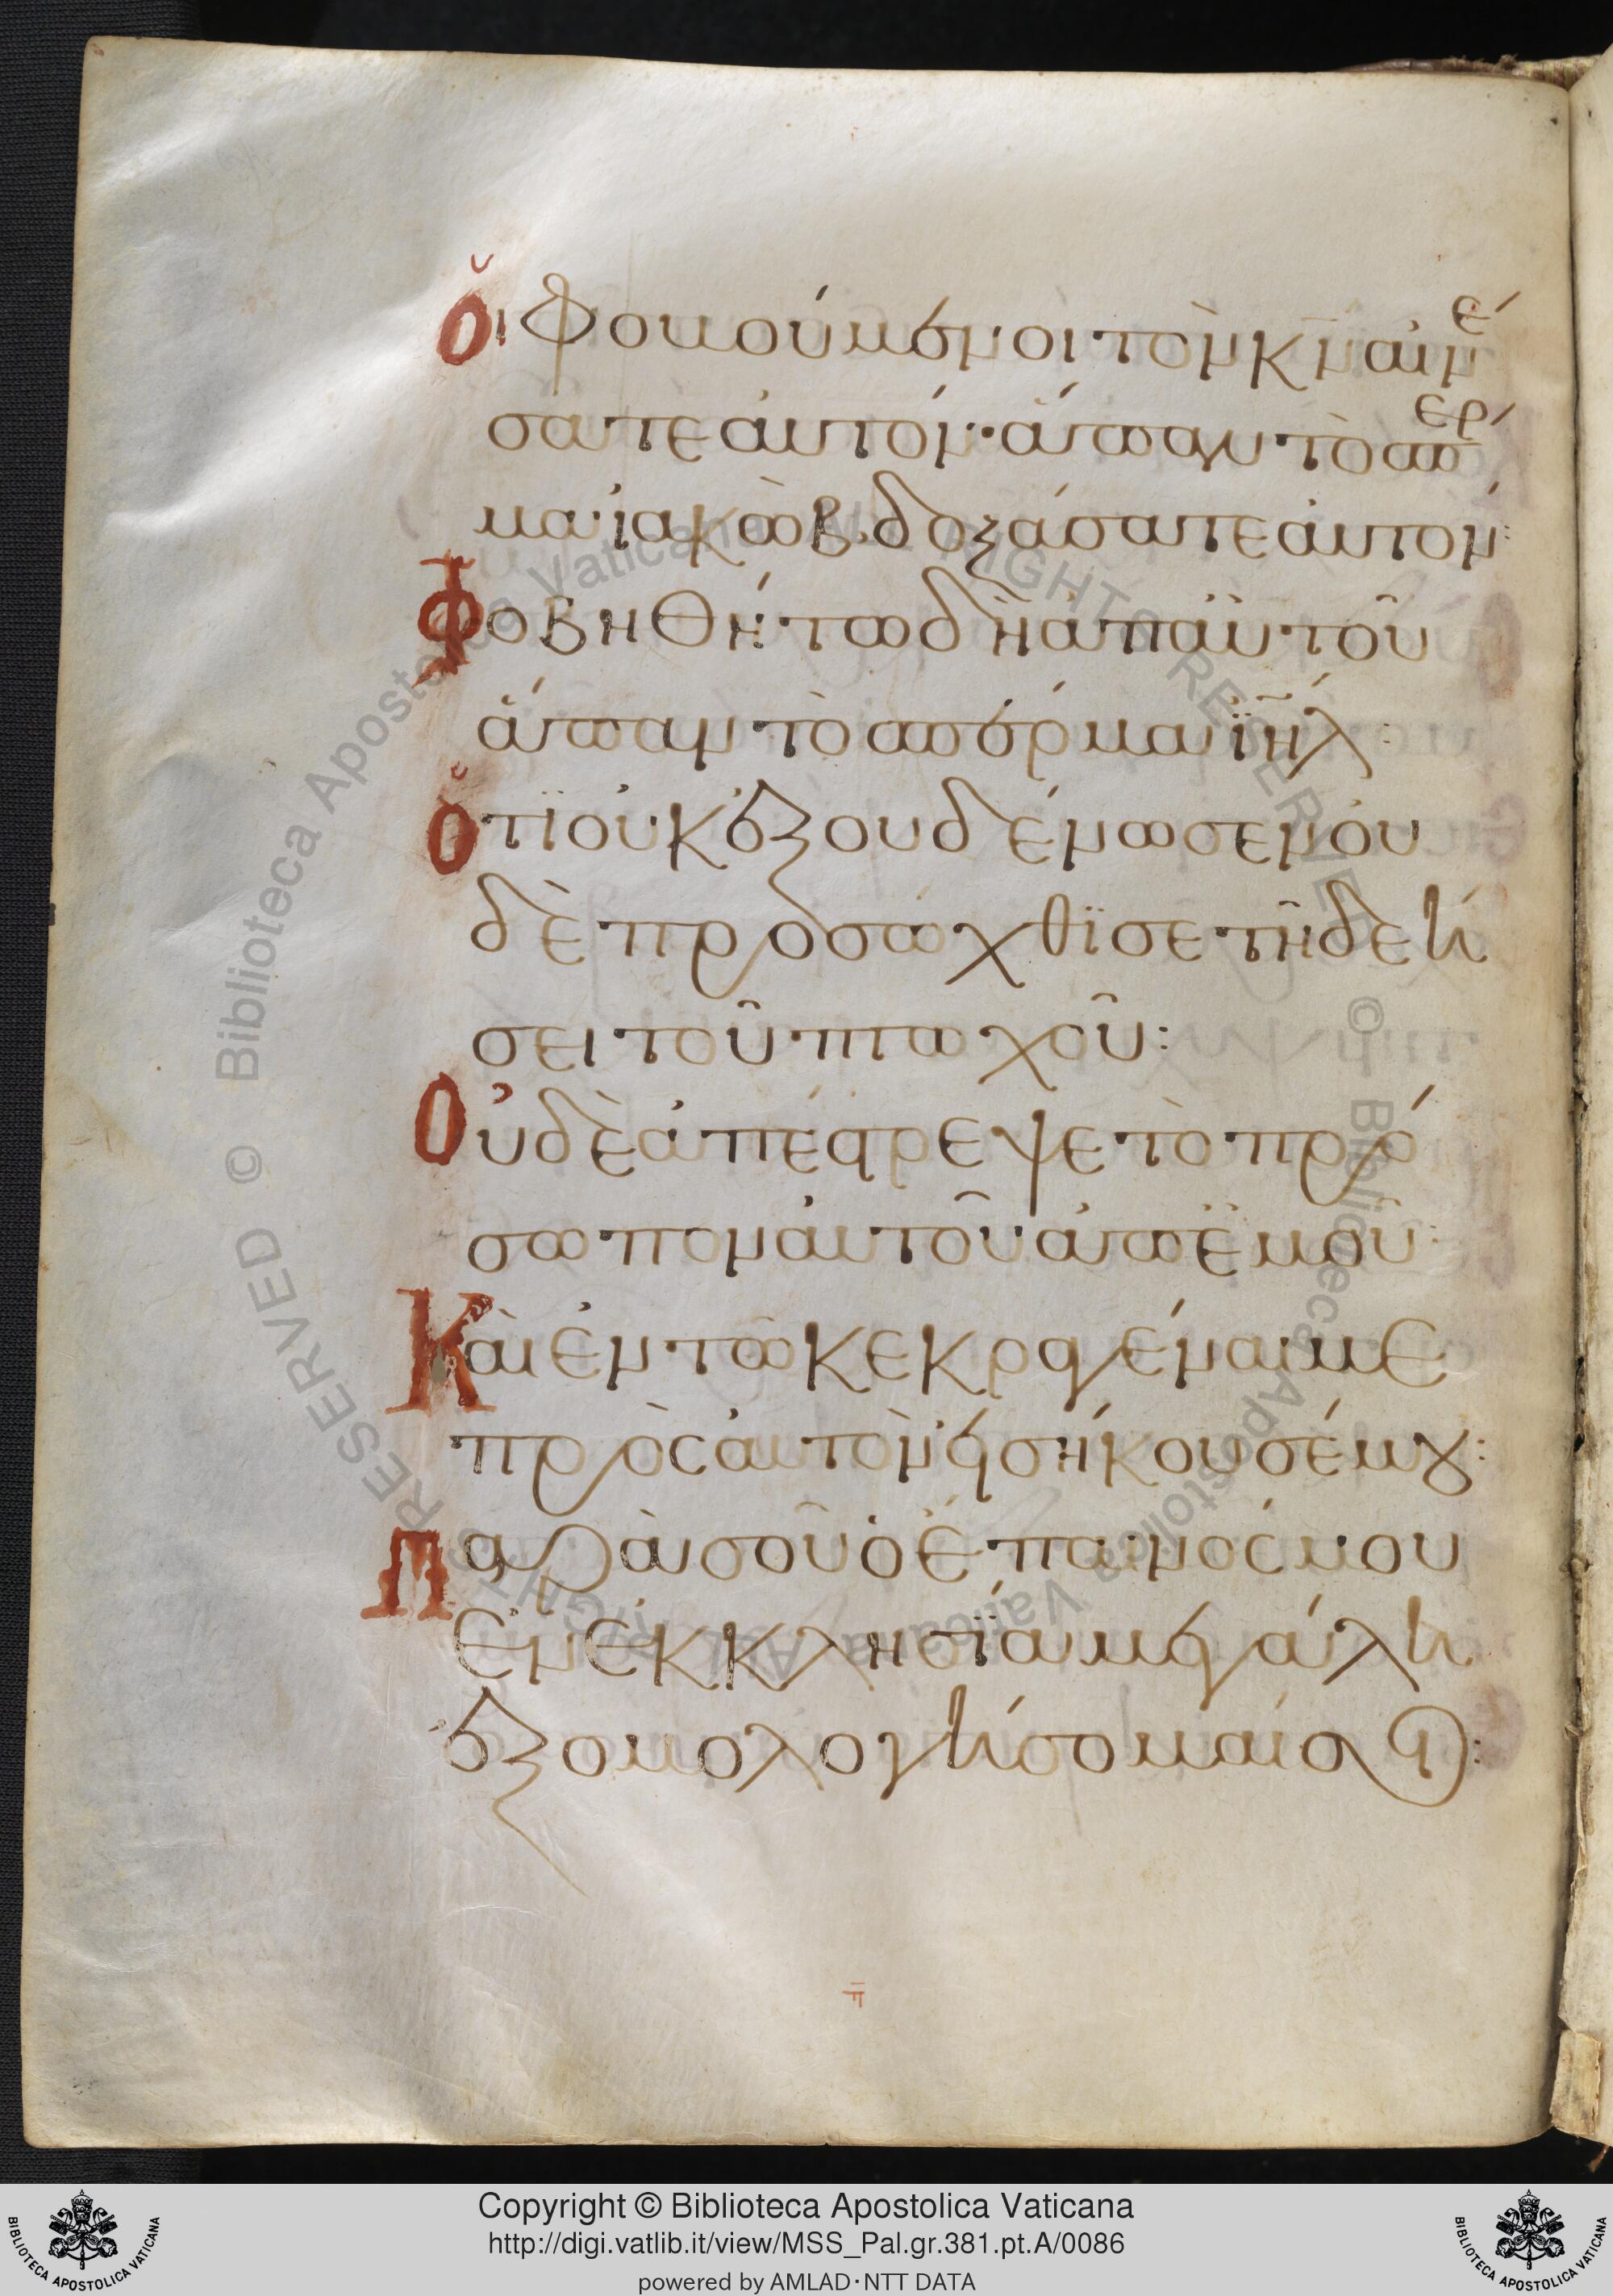 Οἱ φοβούμενοι τὸν κν αἰνέ
σατε αὐτόν· ἅπαν τὸ σπέρ
μα ἰακὼβ δοξάσατε αὐτόν:
Φοβηθήτω δὴ ἀπ αὐτοῦ
ἅπαν τὸ σπέρμα ϊηλ:
Ὅτι οὐκ ἐξουδένωσεν οὐ
δὲ προσώχθισε τῆ δεή
σει τοῦ πτωχοῦ:
Οὐδὲ ἀπέστρεψε τὸ πρό
σωπον αὐτοῦ ἀπ ἐμοῦ:
Καὶ ἐν τῶ κεκραγέναι με
πρὸς αὐτὸν εἰσήκουσέ μου:
Παρὰ σοῦ ὁ ἔπαινός μου
ἐν ἐκκλησία μεγάλη
ἐξομολογήσομαί σοι:
π
© Biblioteca Apostolica Vaticana ALL RIGHTS RESERVED © Biblioteca Apostolica Vaticana ALL RIGHTS RESERVED
Copyright © Biblioteca Apostolica Vaticana
http://digi.vatlib.it/view/MSS_Pal.gr.381.pt.A/0086
powered by AMLAD·NTT DATA
BIBLIOTECA APOSTOLICA VATICANA
BIBLIOTECA APOSTOLICA VATICANA